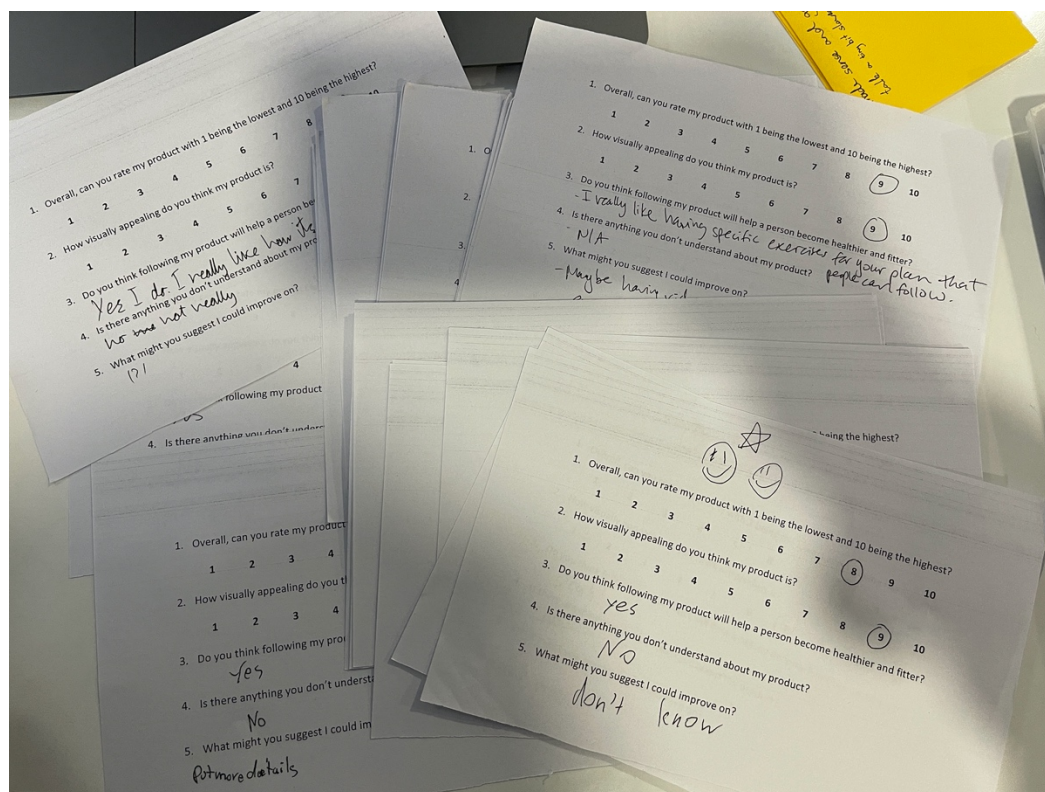 1. Overall, can you rate my product with 1 being the lowest and 10 being the highest?
1 2 3 4 5 6 7 8
2. How visually appealing do you think my product is?
1 2 3 4 5 6 7
3. Do you think following my product will help a person be
Yes I do. I really like how its
4. Is there anything you don't understand about my pro
no not really
5. What might you suggest I could improve on?
1?!
4
following my product
4. Is there anything you don't under
1. O
2.
3.
4
made sense and
talk a tiny bit
1. Overall, can you rate my product with 1 being the lowest and 10 being the highest?
1 2 3 4 5 6 7 8 9 10
2. How visually appealing do you think my product is?
1 2 3 4 5 6 7 8 9 10
3. Do you think following my product will help a person become healthier and fitter?
-I really like having specific exercises for your plan that
people can follow.
4. Is there anything you don't understand about my product?
- N/A
5. What might you suggest I could improve on?
-Maybe having
being the highest?
1. Overall, can you rate my product
1 2 3 4
2. How visually appealing do you t
1 2 3 4
3. Do you think following my pro
Yes
4. Is there anything you don't underst
No
5. What might you suggest I could im
Put more details
1. Overall, can you rate my product with 1 being the lowest and 10 being the highest?
1 2 3 4 5 6 7 8 9 10
2. How visually appealing do you think my product is?
1 2 3 4 5 6 7 8 9 10
3. Do you think following my product will help a person become healthier and fitter?
yes
4. Is there anything you don't understand about my product?
No
5. What might you suggest I could improve on?
don't know